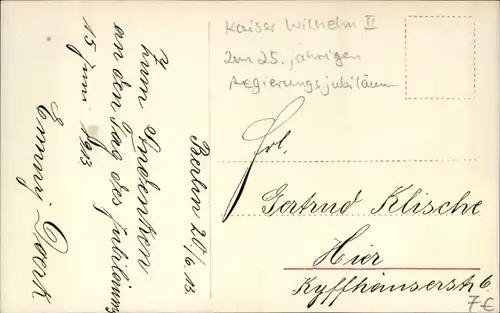 Berlin 20/6. 13.
Zum Andenken
an den Tag des Jubiläums
15 Juni 1913
Emmy
Kaiser Wilhelm II
zum 25. jährigen
Regierungsjubiläum
Frl.
Gertrud Klische
Hier
Kyffhäuserstr 6
7€